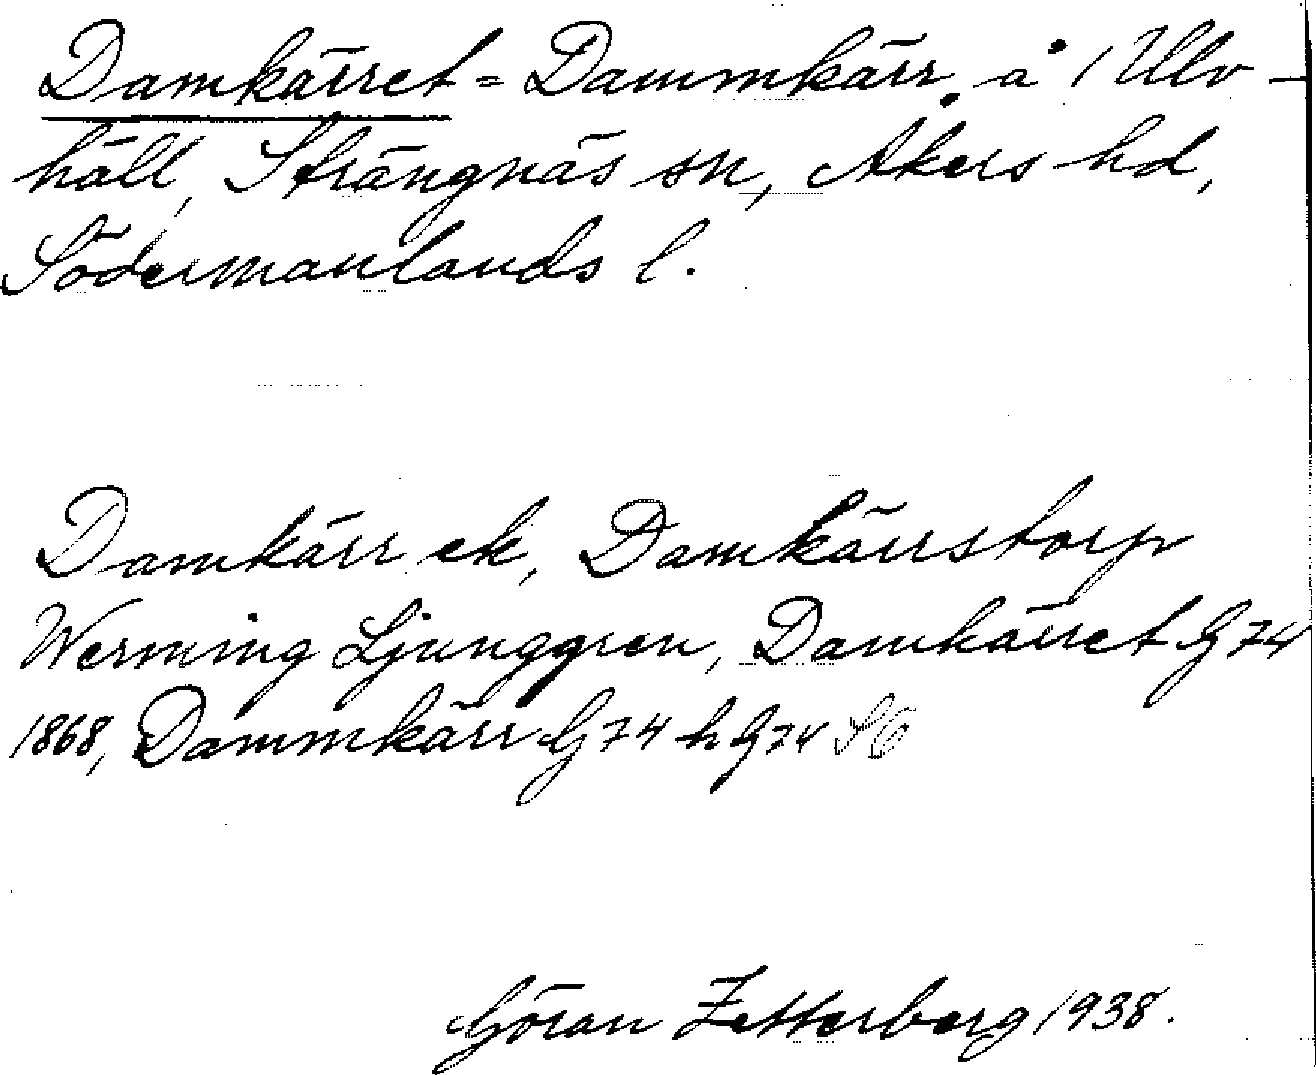 Damkärret = Dammkärr, å 1 Ulv-
häll, Strängnäs sn, Åkers hd,
Södermanlands l.
Damkärr ek, Damkärrstorp
Werming Ljunggren, Damkärret G 74
1868, Dammkärr G 74 h G 74
Göran Zetterberg 1938.